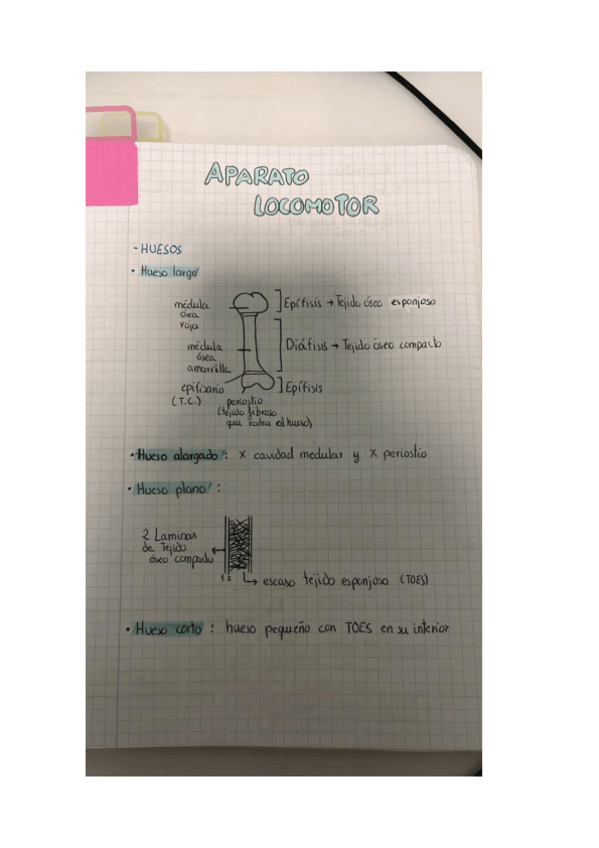 APARATO
LOCOMOTOR
- HUESOS
• Hueso largo
médula
ósea
roja
Epífisis → Tejido óseo esponjoso
médula
ósea
amarilla
Diáfisis → Tejido óseo compacto
(T.C.)
Epífisis
periostio
(tejido fibroso
que rodea el hueso)
• Hueso alargado: X cavidad medular y X periostio
• Hueso plano:
2 Laminas
de Tejido
óseo compacto
1 2
↳ escaso tejido esponjoso (TOES)
• Hueso corto: hueso pequeño con TOES en su interior